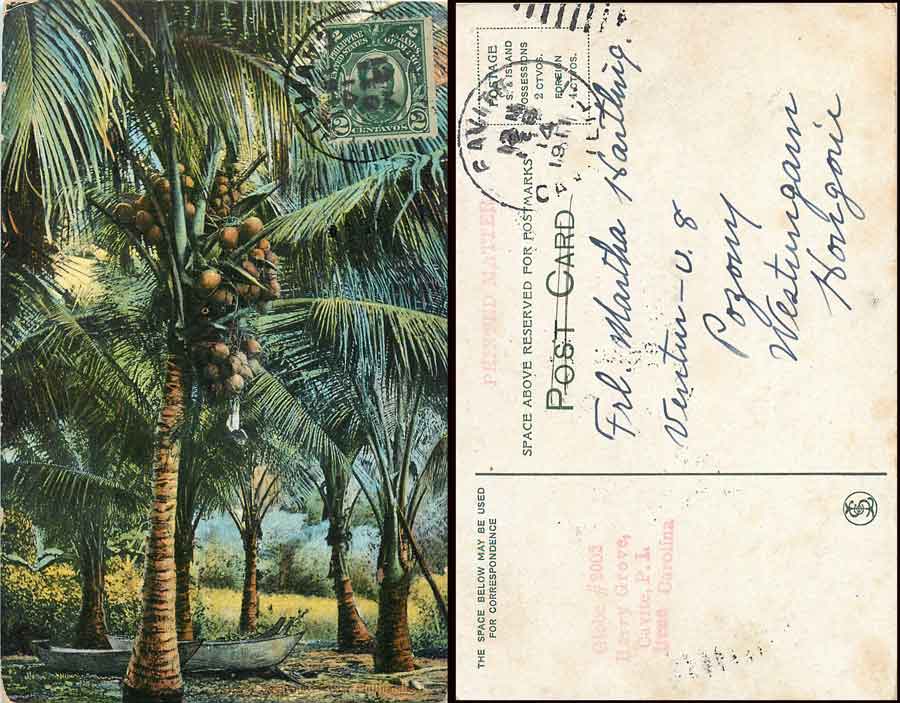 PHILIPPINE ISLANDS
UNITED STATES OF AMERICA
2 CENTAVOS 2
POSTAGE
U.S. & ISLAND
POSSESSIONS
2 CTVOS.
FOREIGN
4 CTVOS.
CAVITE
14
1911
PRINTED MATTER
SPACE ABOVE RESERVED FOR POSTMARKS
POST CARD
Frl. Martha Hartling.
Ventur – U. 8
Pozony
Westungarn
Hongrie
THE SPACE BELOW MAY BE USED
FOR CORRESPONDENCE
Globe #2002
Harry Grove,
Cavite, P.I.
Carolina